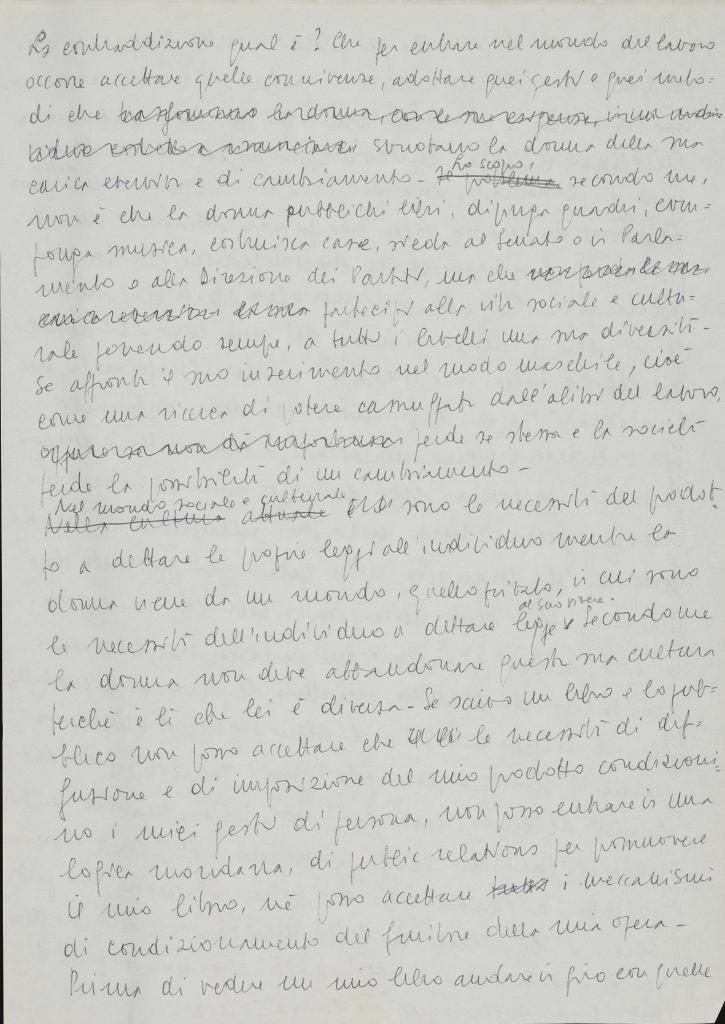 La contraddizione qual è? Che per entrare nel mondo del lavoro
occorre accettare quelle connivenze, adottare quei gesti e quei meto=
di che trasformano la donna, con le sue esigenze, in un
svuotano la donna della sua
carica eversiva e di cambiamento - Il problema Lo scopo, secondo me,
non è che la donna pubblichi libri, dipinga quadri, com=
ponga musica, costruisca case, sieda al Senato o in Parla=
mento o alla Direzione dei Partiti, ma che
partecipi alla vita sociale e cultu=
rale ponendo sempre, a tutti i livelli una sua diversità -
Se affronta il suo inserimento nel modo maschile, cioè
come una ricerca di potere camuffata dall'alibi del lavoro,
perde se stessa e la società
perde la possibilità di un cambiamento -
Nel mondo sociale e culturale
Nella cultura attuale sono le necessità del prodot=
to a dettare le proprie leggi all'individuo mentre la
donna viene da un mondo, quello privato, in cui sono
al suo vivere.
le necessità dell'individuo a dettare legge Secondo me
la donna non deve abbandonare questa sua cultura
perchè è lì che lei è diversa - Se scrivo un libro e lo pub=
blico non posso accettare che le necessità di dif=
fusione e di imposizione del mio prodotto condizioni=
no i miei gesti di persona, non posso entrare in una
logica mondana, di public relations per promuovere
il mio libro, nè posso accettare tutti i meccanismi
di condizionamento del fruitore della mia opera -
Prima di vedere un mio libro andare in giro con quelle